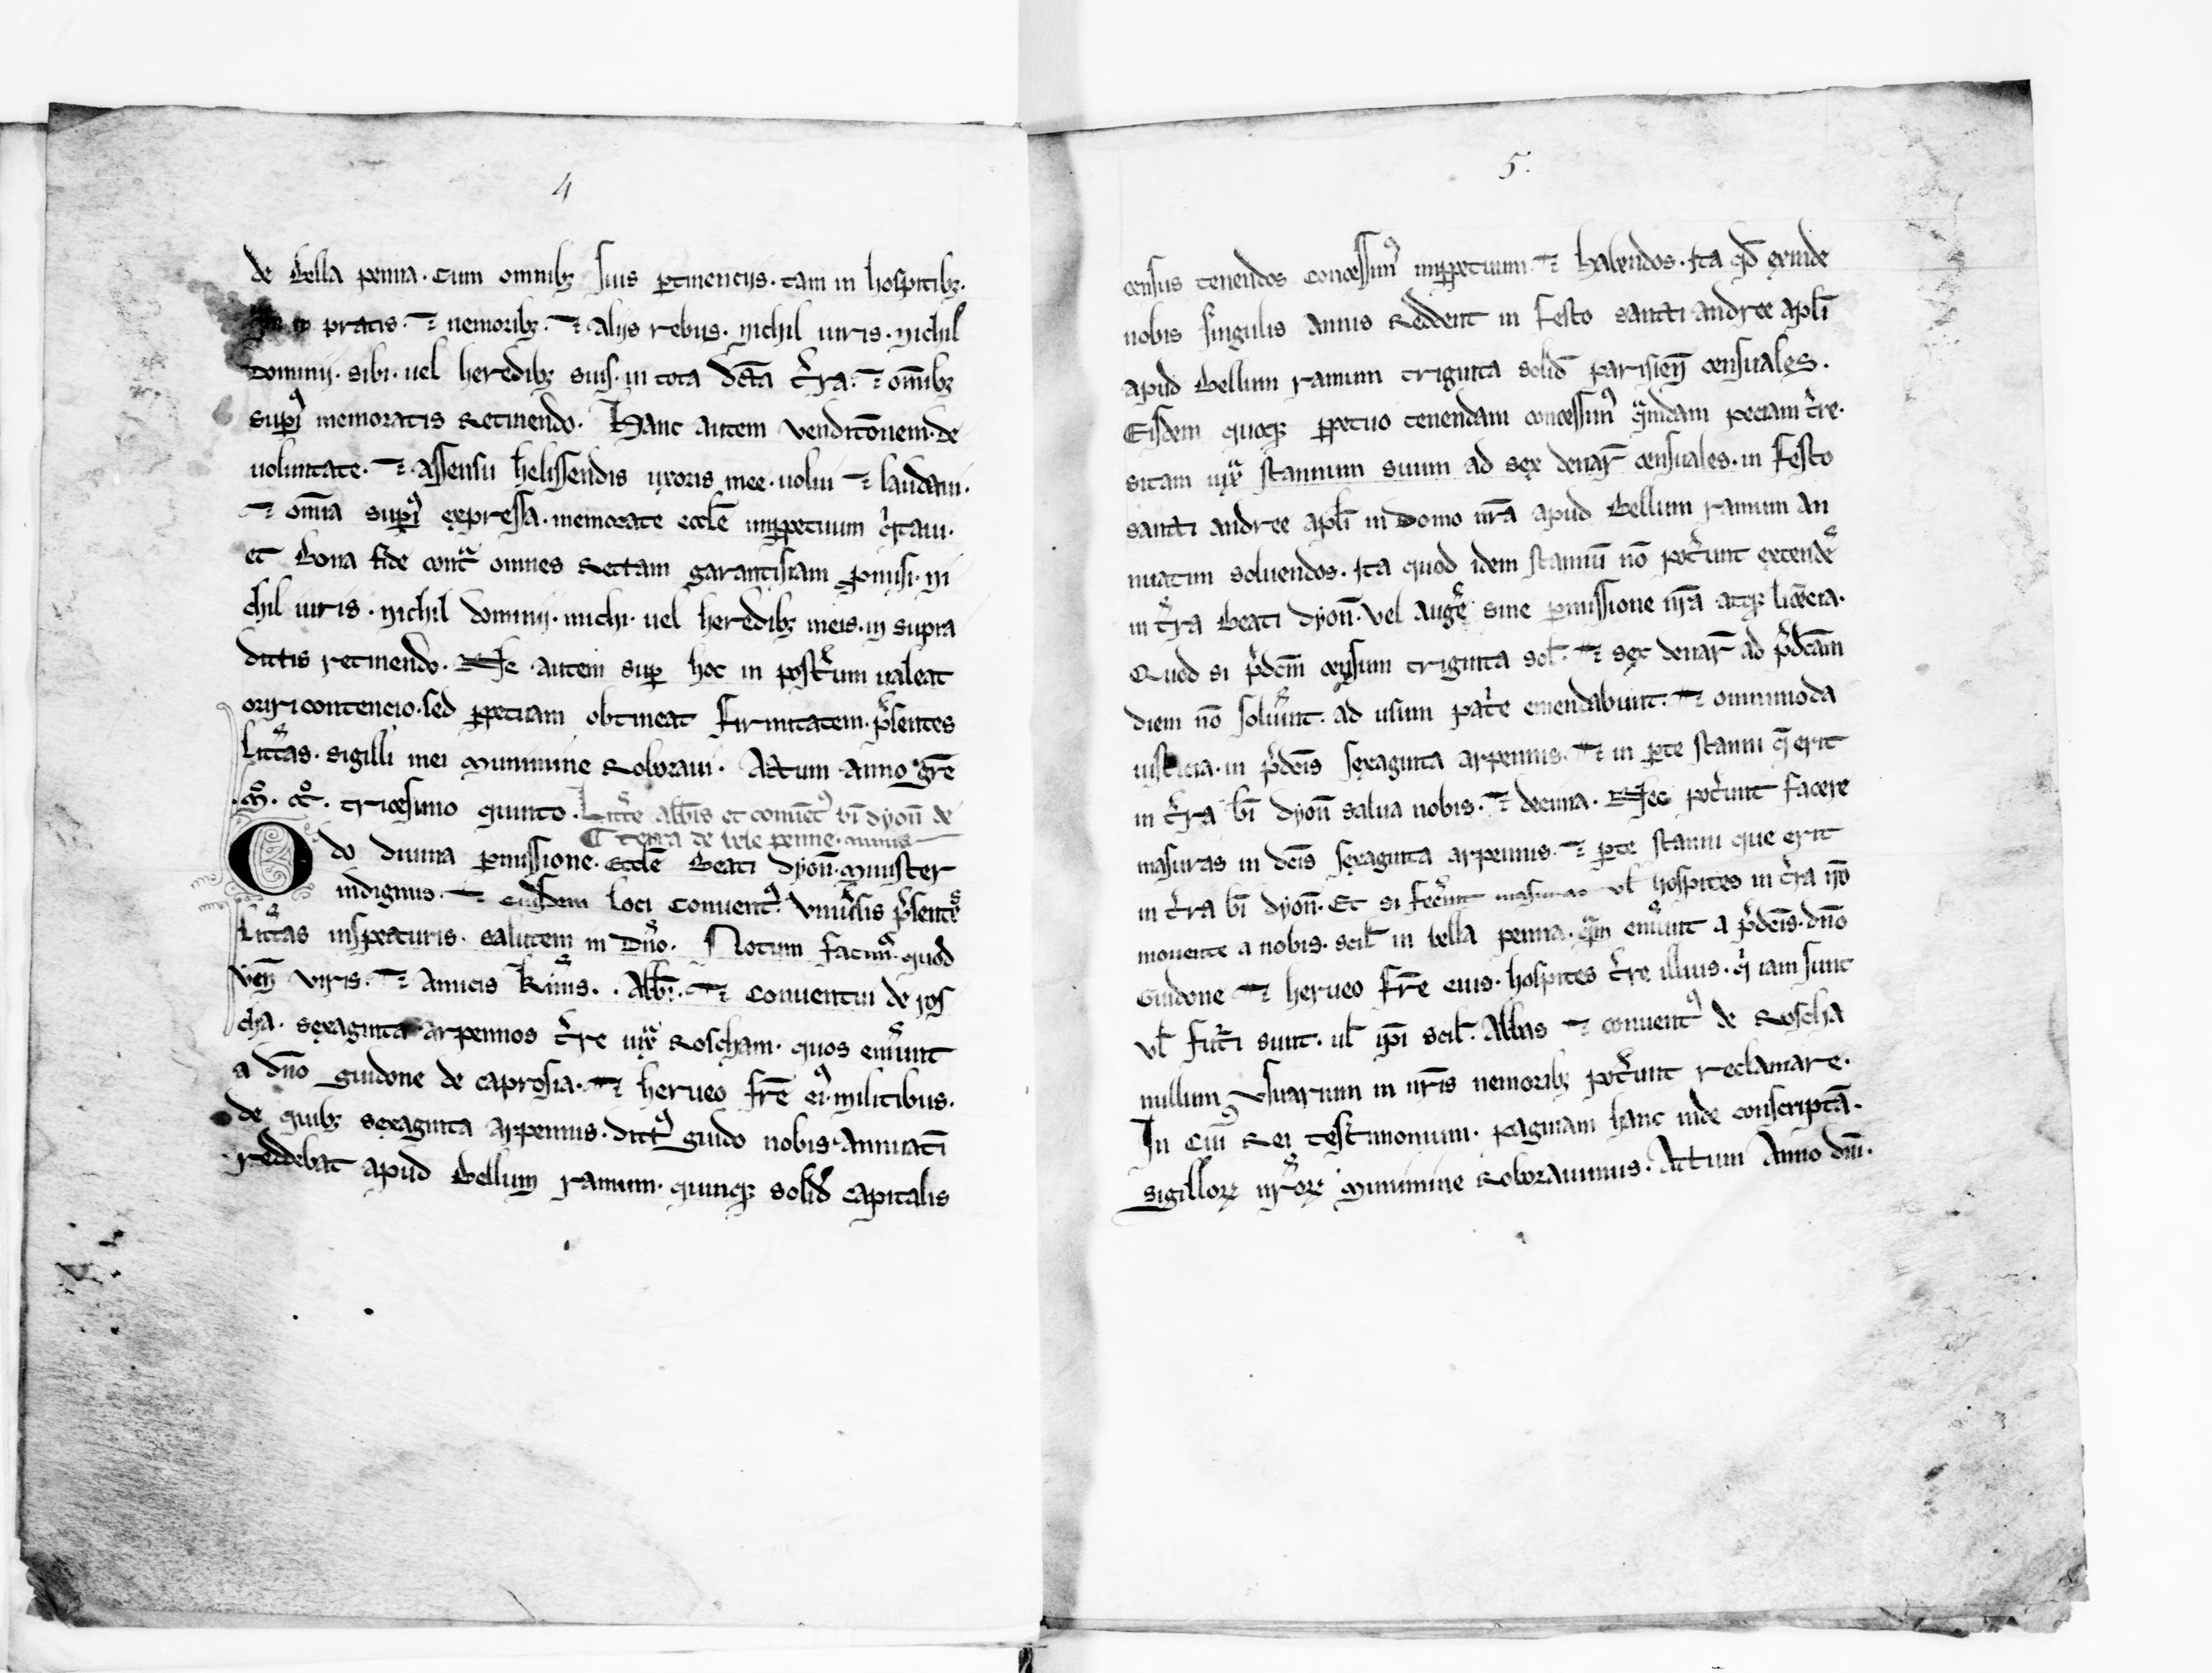 4
de Bella penna. cum omnibȝ suis ꝑtinenciis. tam in hospitibȝ.
pratis. ⁊ nemoribȝ. ⁊ aliis rebus. nichil iuris. nichil
dominij. sibi. uel heredibȝ suis. in tota dc̄a t̉ra. ⁊ om̄ibȝ
supiꝰ memoratis retinendo. Hanc autem venditōnem. de
uoluntate. ⁊ assensu helissendis uxoris mee. uolui ⁊ laudaui.
⁊ om̄ia supiꝰ expressa. memorate eccłe inꝑpetuum q̉taui.
et bona fide contᵃ omnes rectam garantisiam ꝓmisi. ni
chil iuris. nichil dominij. michi. uel heredibȝ meis. in supra
dictis retinendo. Ne autem suꝑ hoc in post̉um ualeat
oriri contencio. sed ꝑpetuam obtineat firmitatem. p̉sentes
litt̉as. sigilli mei munimine roboraui. Actum anno gr̄e
.mͦ. ccͦ. tricesimo quinto. Litt̉e abb̄is et conuentꝰ bī dyoñ de
¶ terra de bele penne.
Odo diuina ꝑmissione. eccłe beati dyoñ. minister
indignus. ⁊ eiusdem loci conuentꝰ. vniủsis p̉sentes
litt̉as inspecturis. salutem in dn̄o. Notum facimꝰ. quod
veñ viris. ⁊ amicis k̄mis. . Abb̄i. ⁊ conuentui de ros
cha. sexaginta arpennos t̉re iuxᵃ Roscham. quos emer̉unt
a dn̄o guidone de caprosia. ⁊ herueo fr̄e eiꝰ. militibus.
de quibȝ sexaginta arpennis. dictꝰ guido nobis annuatī
reddebat apud Bellum ramum. quinqȝ solid̄ capitalis
5.
census tenendos concessimꝰ inꝑpetuum. ⁊ habendos. Ita qd̄ exinde
nobis singulis annis reddent in festo sancti andree apłi
apud Bellum ramum triginta solid̄ parisień censuales.
Eisdem quoqȝ ꝑpetuo tenendam concessimꝰ qᵃndam peciam t̉re.
sitam iuxᵃ stannum suum ad sex denar̄ censuales. in festo
sancti andree apłi in domo nr̄a apud Bellum ramum an
nuatim soluendos. Ita quod idem stannū nō pot̉unt extendꝰe
in t̉ra Beati dyoñ. vel auger̉e sine ꝑmissione nr̄a atqȝ licētia.
Quod si p̉dc̄m censum triginta sol̄. ⁊ sex denar̄ ad p̉dc̄am
diem nō solủint. ad usum pat̉e emendabunt. ⁊ omnimoda
iusticia. in p̉dc̄is sexaginta arpennis. ⁊ in ꝑte stanni q̄ erit
in t̉ra bī dyoñ salua nobis. ⁊ decima. Nec pot̉unt facere
masuras in dc̄is sexaginta arpennis. ⁊ ꝑte stanni que erit
in t̉ra bī dyoñ. Et si fec̉int masuras vł hospites in t̉ra nō
mouente a nobis. scił in bella penna. qᵃm emer̉unt a p̉dc̄is. dn̄o
Guidone ⁊ herueo fr̄e eius. hospites t̉re illius. qͥ iam sunt
vł fut̉i sunt. uł ip̄i scił. Abbas ⁊ conuentꝰ de Roscha
nullum vsuarium in nr̄is nemoribȝ pot̉unt reclamare.
In cuiꝰ rei testimonium. paginam hanc inde conscriptā.
sigilloꝝ nr̄oꝝ munimine roborauimus. Actum Anno dn̄i.